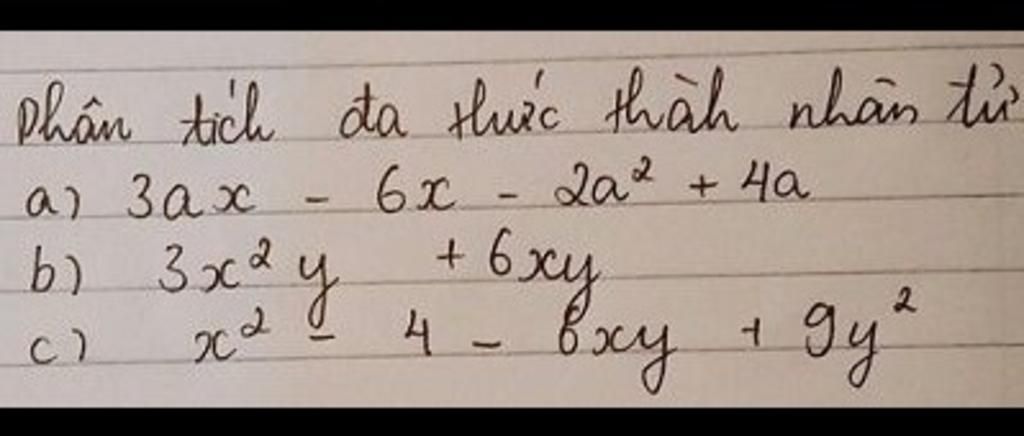 Phân tích đa thức thàh nhân tử
a) 3ax - 6x - 2a² + 4a
b) 3x²y + 6xy
c) x² - 4 - 6xy + 9y²